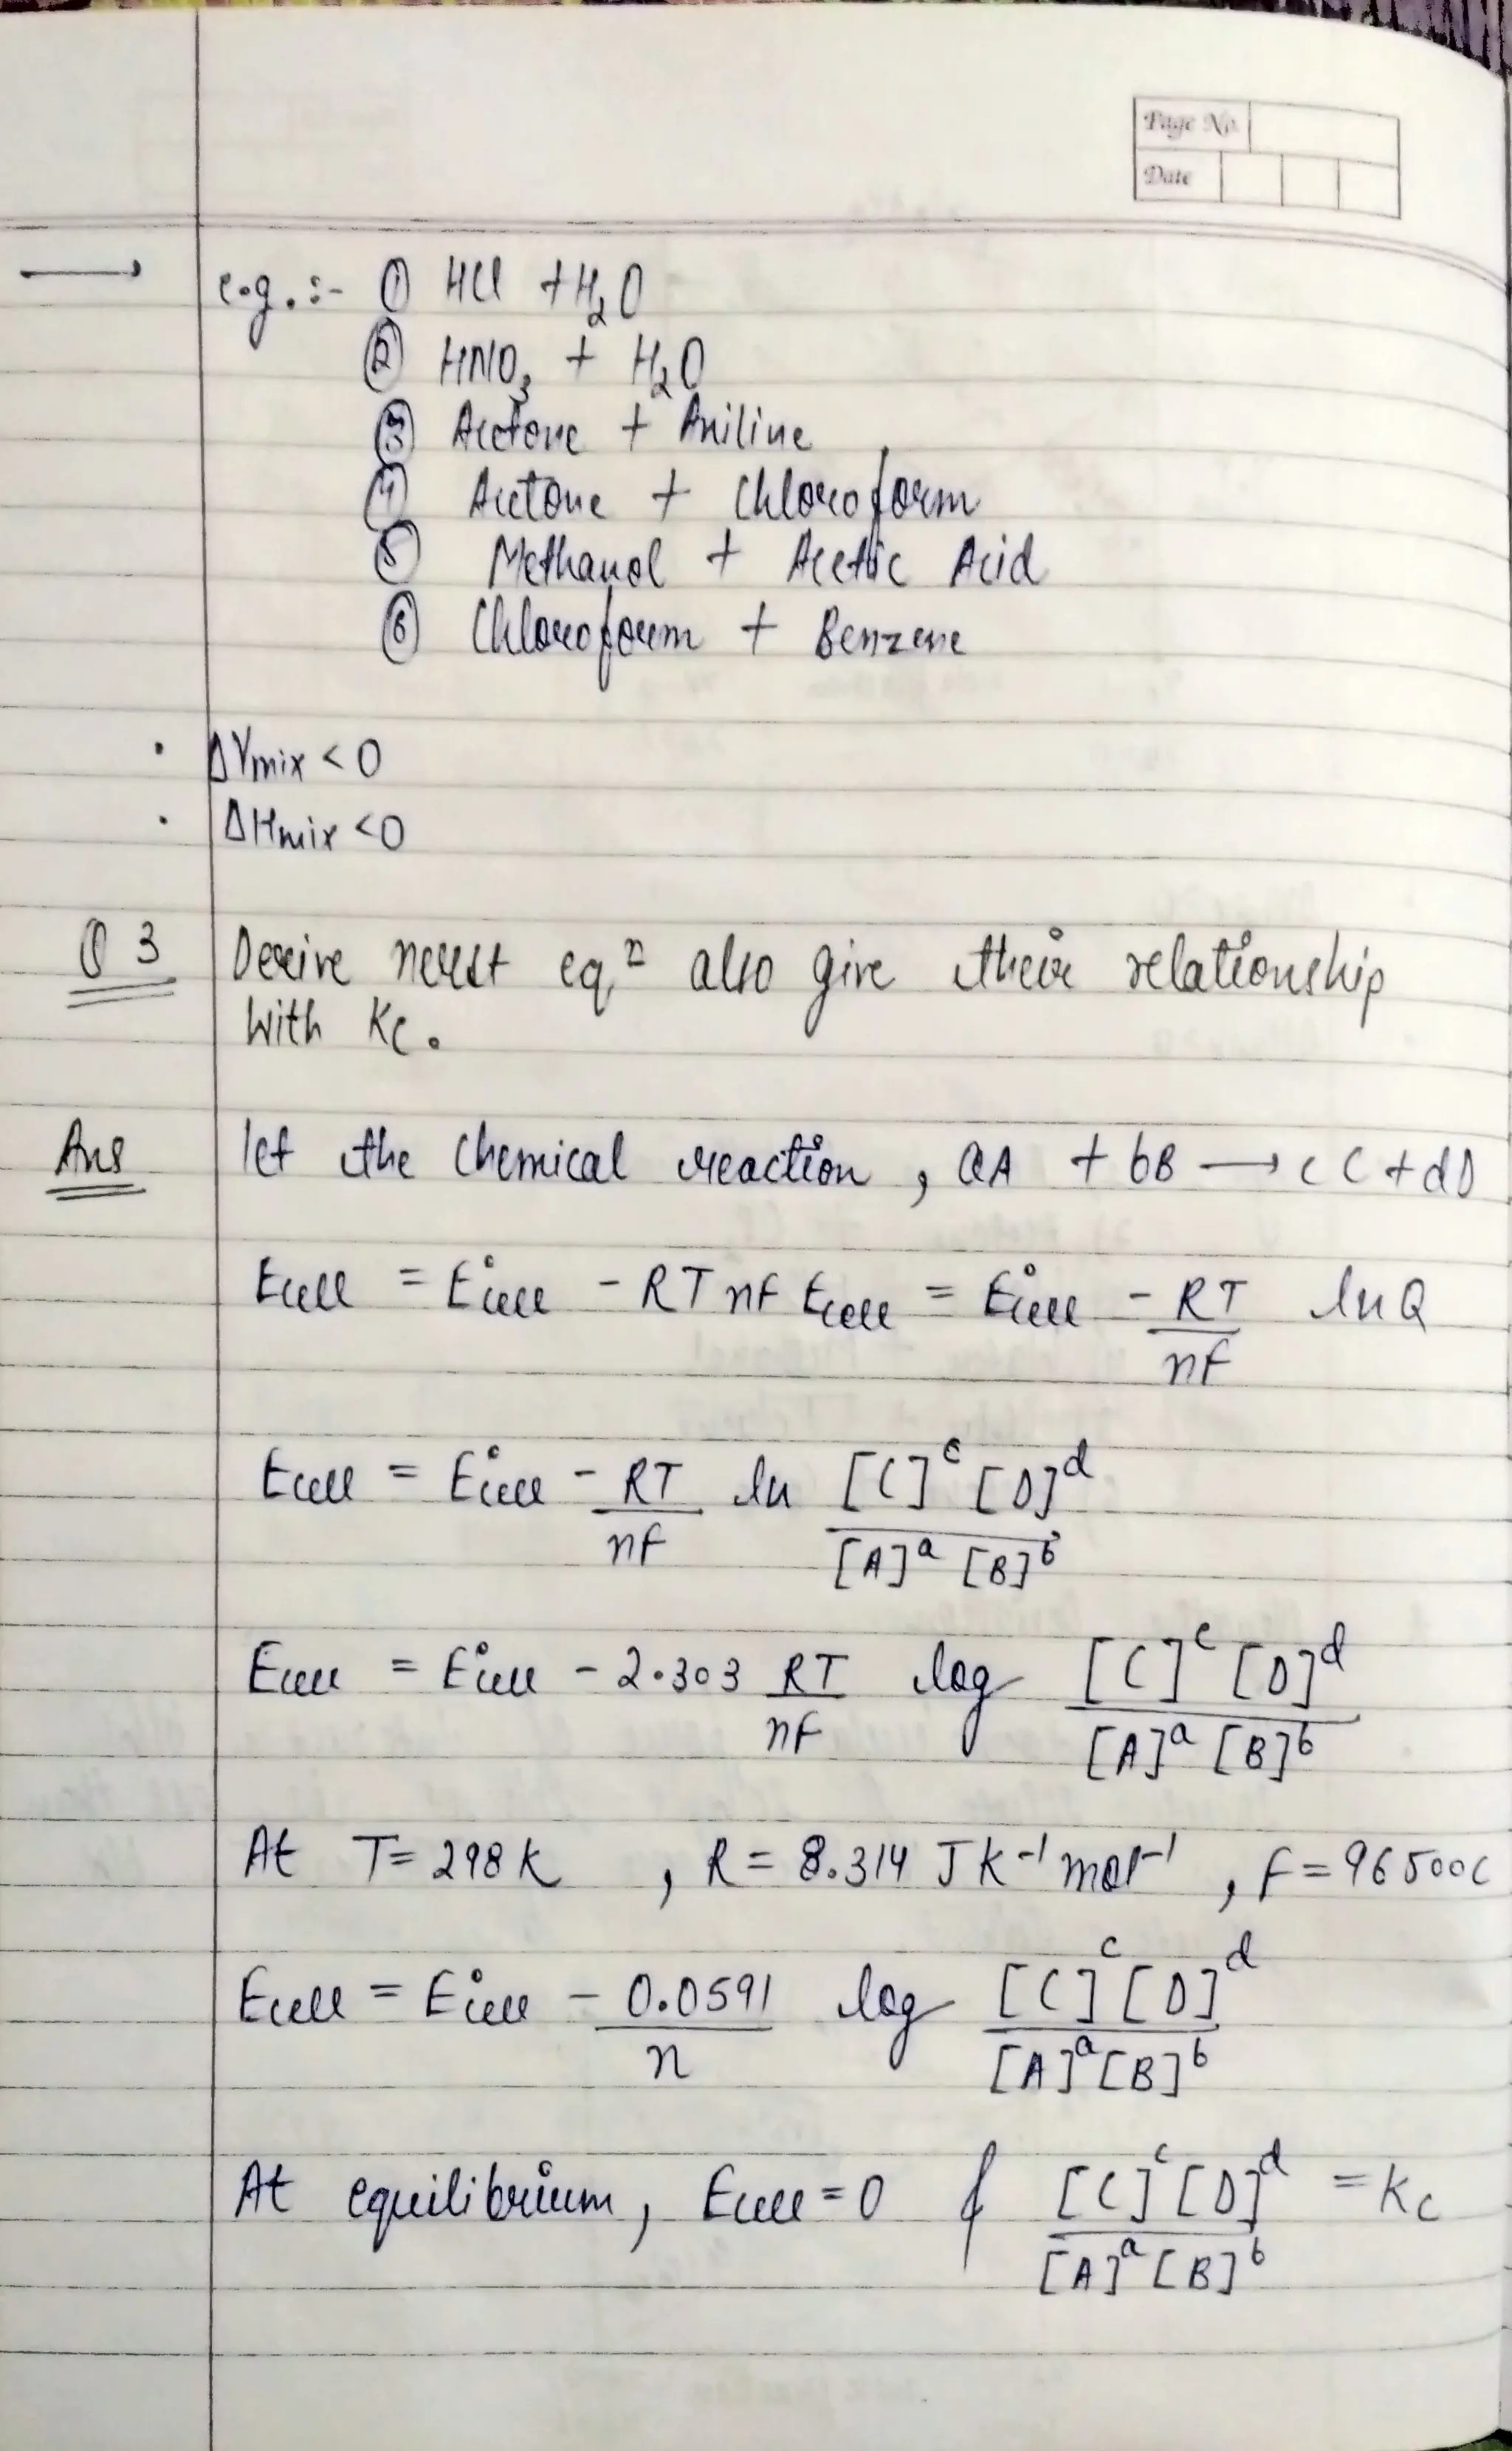 Page No.
Date
e.g. :- ① HCl + H₂O
② HNO₃ + H₂O
③ Acetone + Aniline
④ Acetone + Chloroform
⑤ Methanol + Acetic Acid
⑥ Chloroform + Benzene
· ΔVmix < 0
· ΔHmix < 0
Q 3 Derive nerst eqⁿ also give their relationship
with Kc.
Ans let the chemical reaction, aA + bB ⟶ cC + dD
Ecell = E°cell - RT nF Ecell = E°cell - RT/nF ln Q
Ecell = E°cell - RT/nF ln [C]^c [D]^d / [A]^a [B]^b
Ecell = E°cell - 2.303 RT/nF log [C]^c [D]^d / [A]^a [B]^b
At T = 298 K , R = 8.314 J K⁻¹ mol⁻¹ , F = 96500C
Ecell = E°cell - 0.0591/n log [C]^c [D]^d / [A]^a [B]^b
At equilibrium, Ecell = 0 & [C]^c [D]^d / [A]^a [B]^b = Kc